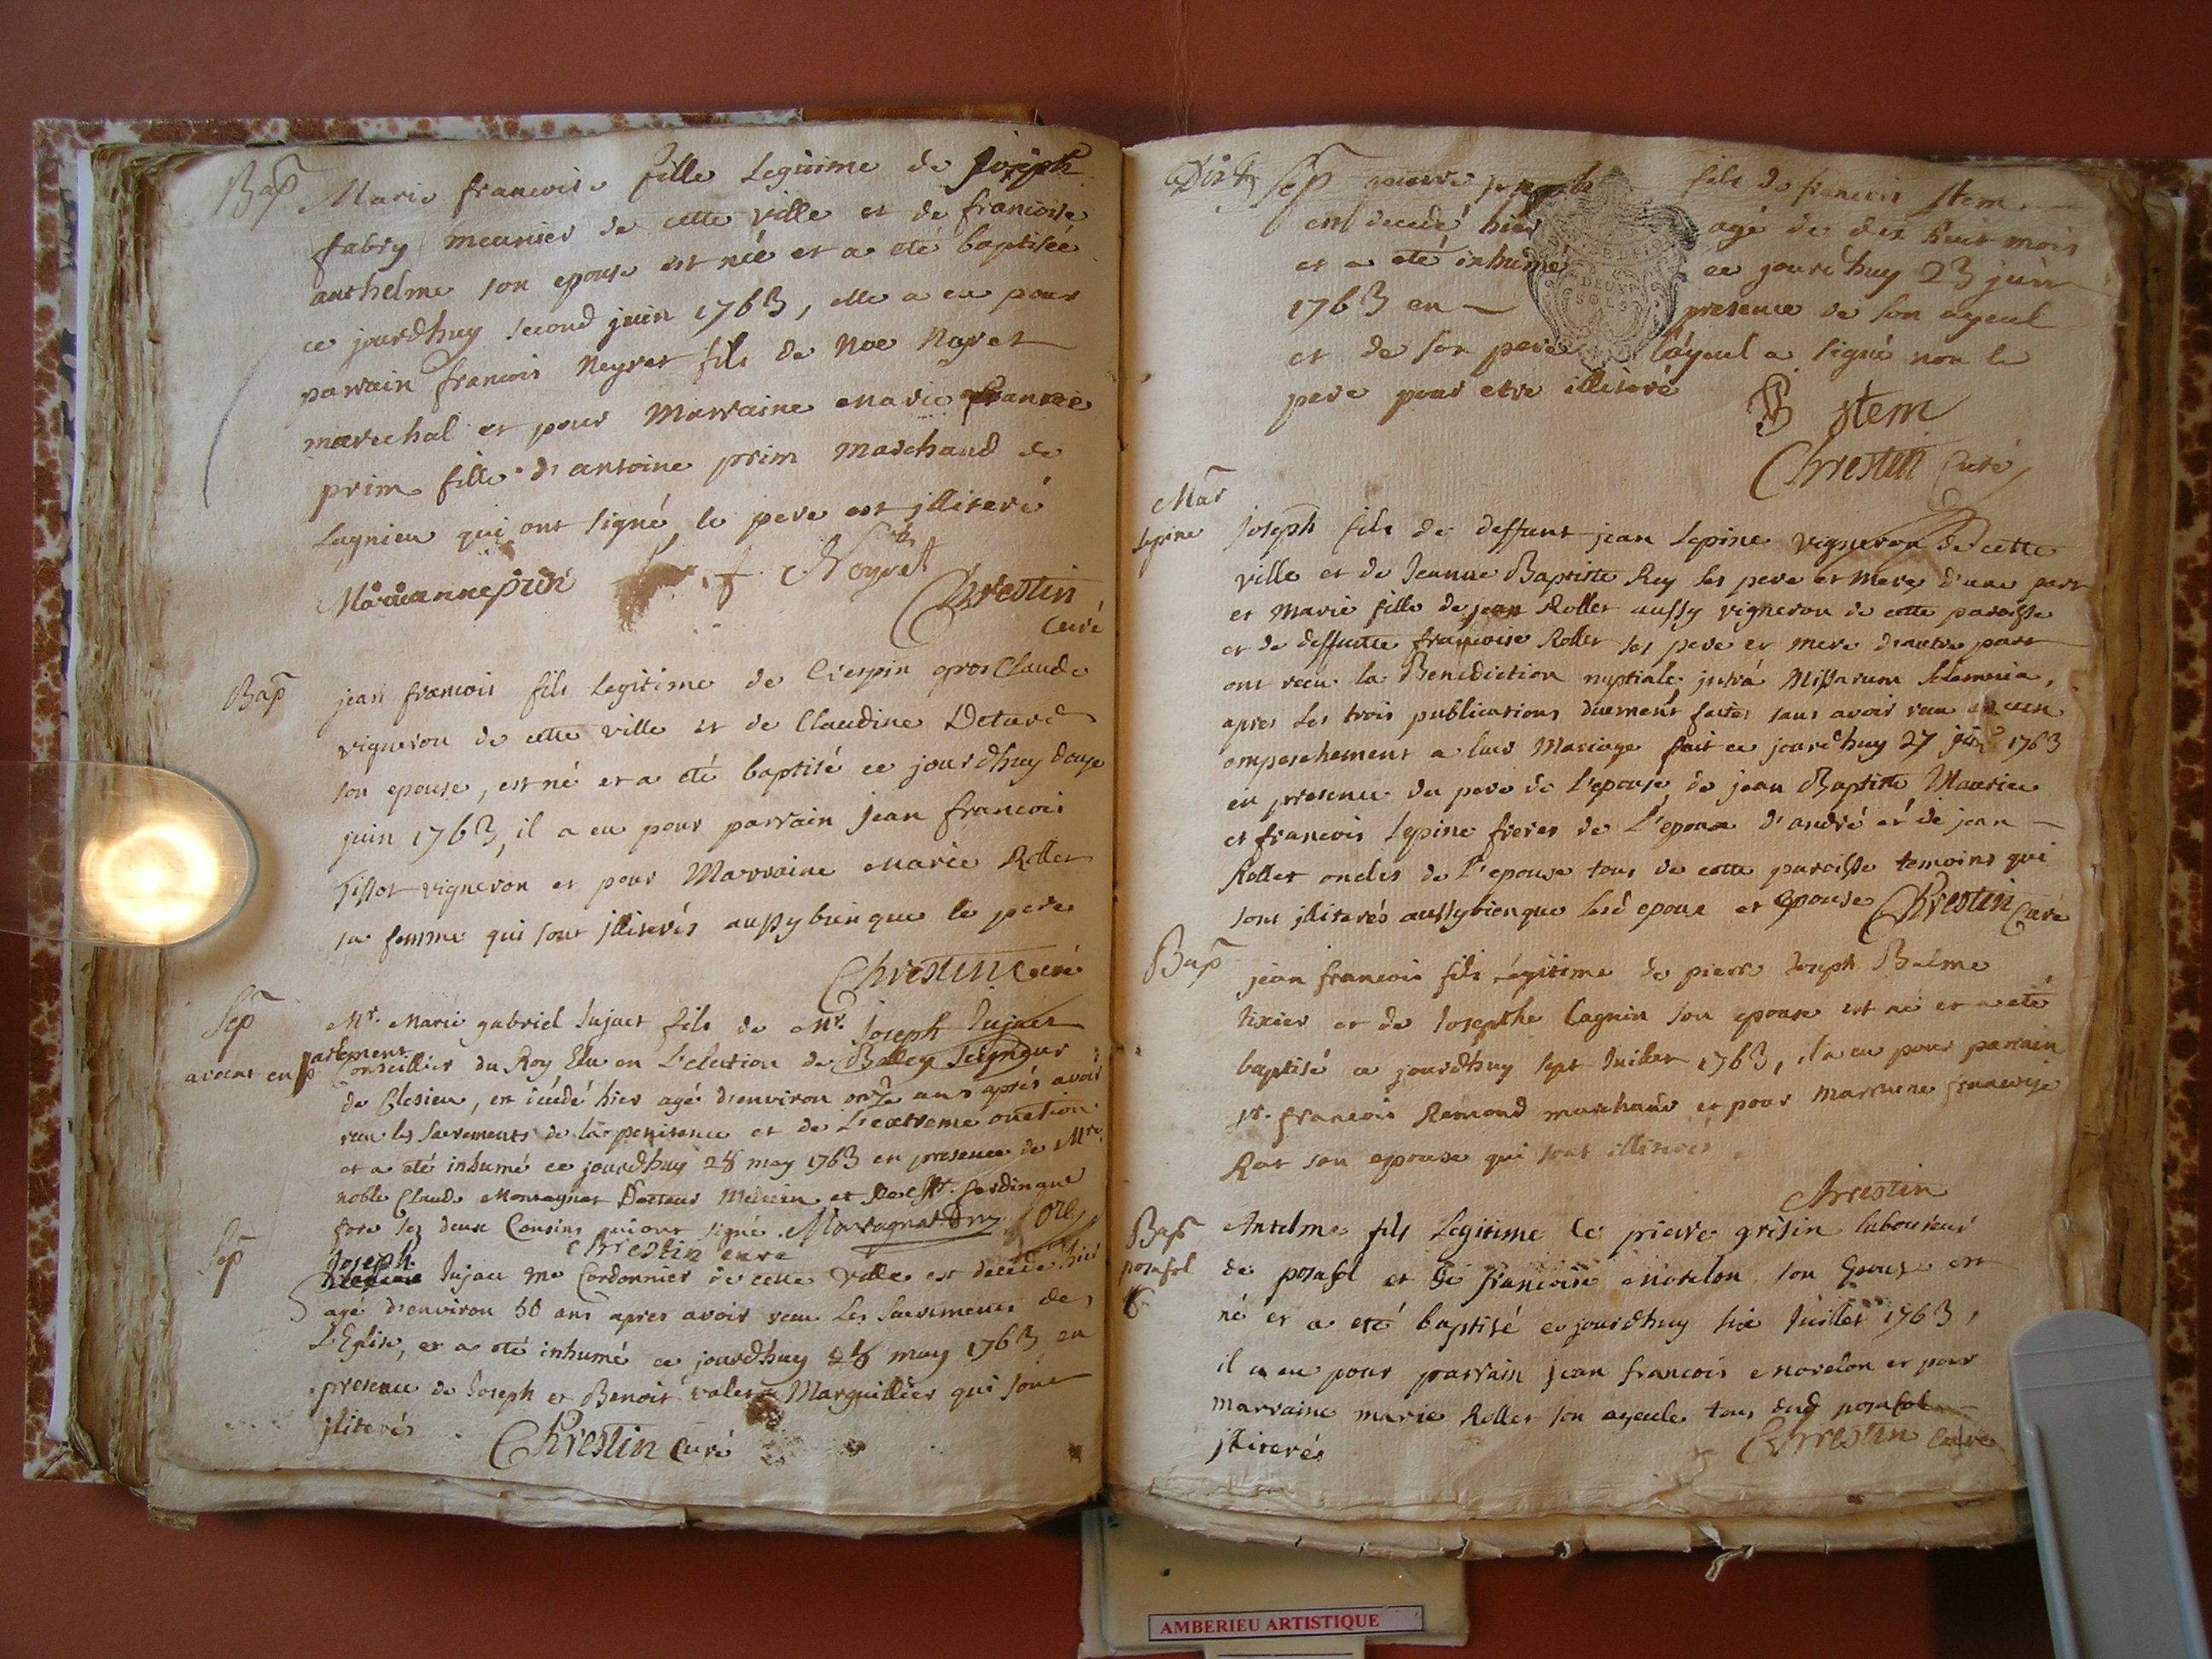 Bap
Marie francoise fille Legitime de Joseph
fabry meunier de cette ville et de francoise
anthelme son epouse est née et a eté baptisée
ce jourdhuy second juin 1763, elle a eu pour
parrain francois Neyret fils de Noe Nayret
marechal et pour Marraine Marie
prim fille d'antoine prim Marchand de
Lagnieu qui ont signé, le pere est jlliteré
f Neyret
Chrestin
Curé
Bap
jean francois fils legitime de Crespin gros Claude
vigneron de cette ville et de Claudine
son epouse, est né et a eté baptisé ce jourdhuy douze
juin 1763, il a eu pour parrain jean francois
Tissot vigneron et pour Marraine Marie Rollet
sa femme qui sont jlliterés aussybienque le pere
Chrestin Curé
Sep
Mr. Marie gabriel Jujaet fils de Mr. Joseph Jujaet
avocat en parlement
Conseiller du Roy Elu en L'election de Belley Seigneur
de , est décédé hier agé d'environ onze ans aprés avoir
recu les sacrements de la penitence et de L'extreme onction
et a eté inhumé ce jourdhuy 28 may 1763 en presence de Mre.
noble Claude Montagnat Docteur Medecin et de Mr.
ses deux Cousins qui ont signé. Montagnat
Chrestin curé
Sep
Joseph
Jujaet me Cordonnier de cette ville est decedé hier
agé d'environ 50 ans apres avoir recu Les Sacrements de
L'Eglise, et a eté inhumé ce jourdhuy may 1763 en
presence de Joseph et Benoit Marguillier qui sont
jlliterés
Chrestin Curé
Sep
pierre fils de francois Stem
est decedé hier agé de dix huit mois
et a eté inhumé ce jourdhuy 23 juin
1763 en presence de son ayeul
et de son pere L'ayeul a signé non le
pere pour etre illiteré
DEUX
SOLS
Stem
Chrestin Curé
Mar
Lepine
Joseph fils de deffunt jean Lepine vigneron de cette
ville et de Jeanne Baptiste Rey ses pere et mere d'une part
et Marie fille de jean Rollet aussy vigneron de cette paroisse
et de deffunte francoise Rollet ses pere et mere d'autre part
ont recu la Benediction nuptiale jntra Missarum solemnia,
apres les trois publications duement faites sans avoir recu aucun
empeschement a leur Mariage fait ce jourdhuy 27 juin 1763
en presence du pere de l'epouse de jean Baptiste Maurice
et francois Lepine freres de L'epoux d'andré et de jean
Rollet oncles de l'epouse tous de cette paroisse temoins qui
sont jlliterés aussybienque lesd epoux et epouse Chrestin Curé
Bap
jean francois fils Légitime de pierre Joseph Balme
tixier et de Josepthe Cagnin son epouse est né et a eté
baptisé ce jourdhuy sept Juillet 1763, il a eu pour parrain
Sr. francois Remond marchand et pour marraine francoise
Rat son epouse qui sont illiterés
Chrestin
Bap
posafol
Antelme fils Legitime de pierre grisin laboureur
de posafol et de francoise morelon son Epouse est
né et a eté baptisé ce jourdhuy six Juillet 1763,
il a eu pour parrain jean francois morelon et pour
marraine marie Rollet son ayeule tous dud posafol
jlliterés
Chrestin Curé
AMBERIEU ARTISTIQUE